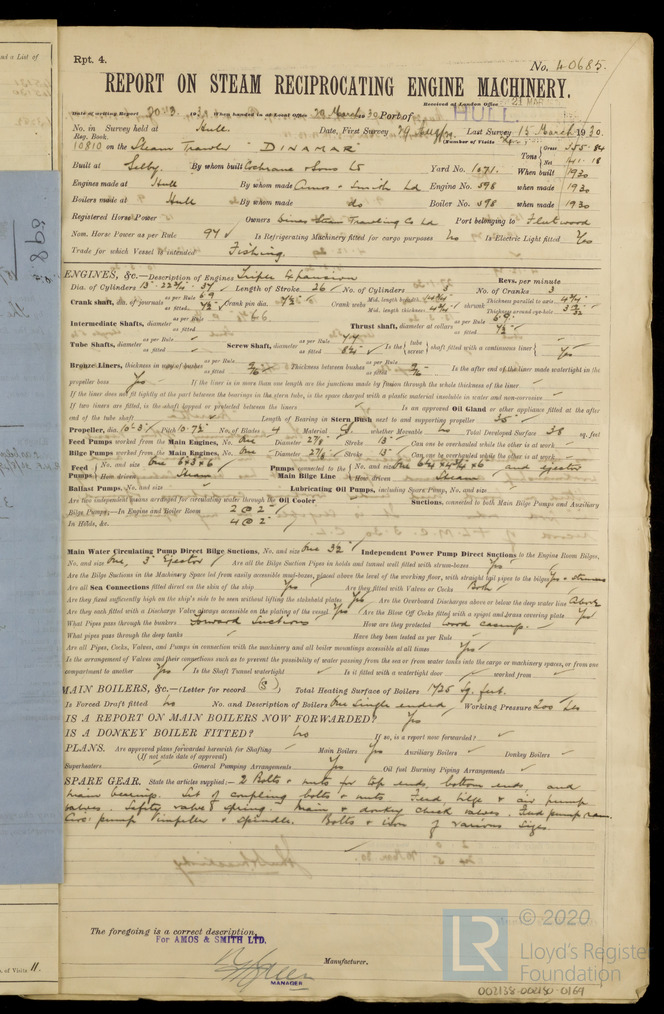 Rpt. 4.
No. 40685.
REPORT ON STEAM RECIPROCATING ENGINE MACHINERY.
Received at London Office
Date of writing Report 20.3.1930 When handed in at Local Office 20 March 1930 Port of HULL
No. in Survey held at Hull. Date, First Survey Last Survey 15 March 1930
Reg. Book. (Number of Visits
10810 on the Steam Trawler "DINAMAR" Tons Gross 355.84
Net 141.18
Built at Selby. By whom built Cochrane & Sons Ld Yard No. 1071. When built 1930
Engines made at Hull By whom made Amos & Smith Ld Engine No. 598 when made 1930
Boilers made at Hull By whom made do Boiler No. 598 when made 1930
Registered Horse Power Owners Steam Trawling Co Ld Port belonging to Fleetwood
Nom. Horse Power as per Rule 97 Is Refrigerating Machinery fitted for cargo purposes No Is Electric Light fitted Yes
Trade for which Vessel is intended Fishing.
ENGINES, &c.—Description of Engines Triple Expansion Revs. per minute
Dia. of Cylinders Length of Stroke 26 No. of Cylinders 3 No. of Cranks 3
Crank shaft, dia. of journals as per Rule 6.9 as fitted Crank pin dia. Crank webs Mid. length breadth Mid. length thickness shrunk Thickness parallel to axis Thickness around eye-hole
Intermediate Shafts, diameter as per Rule 6.6 as fitted Thrust shaft, diameter at collars as per Rule 6.9 as fitted
Tube Shafts, diameter as per Rule as fitted Screw Shaft, diameter as per Rule as fitted Is the tube screw shaft fitted with a continuous liner Yes
Bronze Liners, thickness in way of bushes as per Rule as fitted Thickness between bushes as per Rule as fitted Is the after end of the liner made watertight in the
propeller boss Yes If the liner is in more than one length are the junctions made by fusion through the whole thickness of the liner
If the liner does not fit tightly at the part between the bearings in the stern tube, is the space charged with a plastic material insoluble in water and non-corrosive
If two liners are fitted, is the shaft lapped or protected between the liners Is an approved Oil Gland or other appliance fitted at the after
end of the tube shaft Length of Bearing in Stern Bush next to and supporting propeller 36"
Propeller, dia. 10'-3" Pitch No. of Blades Material whether Moveable No Total Developed Surface 38 sq. feet
Feed Pumps worked from the Main Engines, No. One Diameter 2 7/8" Stroke 13" Can one be overhauled while the other is at work
Bilge Pumps worked from the Main Engines, No. One Diameter 2 7/8" Stroke 13" Can one be overhauled while the other is at work
Feed Pumps No. and size One 6x3x6 How driven Steam Pumps connected to the Main Bilge Line No. and size One and ejector How driven Steam
Ballast Pumps, No. and size Lubricating Oil Pumps, including Spare Pump, No. and size
Are two independent means arranged for circulating water through the Oil Cooler Suctions, connected to both Main Bilge Pumps and Auxiliary
Bilge Pumps;—In Engine and Boiler Room 2 @ 2"
In Holds, &c. 4 @ 2"
Main Water Circulating Pump Direct Bilge Suctions, No. and size One 3 1/2" Independent Power Pump Direct Suctions to the Engine Room Bilges,
No. and size One, 3" Ejector Are all the Bilge Suction Pipes in holds and tunnel well fitted with strum-boxes Yes
Are the Bilge Suctions in the Machinery Space led from easily accessible mud-boxes, placed above the level of the working floor, with straight tail pipes to the bilges Yes & strums
Are all Sea Connections fitted direct on the skin of the ship Yes Are they fitted with Valves or Cocks Both
Are they fixed sufficiently high on the ship's side to be seen without lifting the stokehold plates Yes Are the Overboard Discharges above or below the deep water line Above
Are they each fitted with a Discharge Valve always accessible on the plating of the vessel Yes Are the Blow Off Cocks fitted with a spigot and brass covering plate Yes
What Pipes pass through the bunkers Forward Suctions How are they protected Wood casing.
What pipes pass through the deep tanks Have they been tested as per Rule
Are all Pipes, Cocks, Valves, and Pumps in connection with the machinery and all boiler mountings accessible at all times Yes
Is the arrangement of Valves and their connections such as to prevent the possibility of water passing from the sea or from water tanks into the cargo or machinery spaces, or from one
compartment to another Yes Is the Shaft Tunnel watertight Is it fitted with a watertight door worked from
MAIN BOILERS, &c.—(Letter for record (S)) Total Heating Surface of Boilers 1725 sq. feet.
Is Forced Draft fitted No No. and Description of Boilers One Single ended Working Pressure 200 lbs
IS A REPORT ON MAIN BOILERS NOW FORWARDED? Yes
IS A DONKEY BOILER FITTED? No If so, is a report now forwarded?
PLANS. Are approved plans forwarded herewith for Shafting Main Boilers Yes Auxiliary Boilers Donkey Boilers
(If not state date of approval)
Superheaters General Pumping Arrangements Yes Oil fuel Burning Piping Arrangements
SPARE GEAR. State the articles supplied:— 2 Bolts & nuts for top ends, bottom ends and
main bearings. Set of coupling bolts & nuts. Feed bilge & air pump
valves. Safety valve spring. Main & donkey check valves. Feed pump ram.
Circ. pump impeller & spindle. Bolts & iron of various sizes.
The foregoing is a correct description,
For AMOS & SMITH LTD.
Manufacturer.
MANAGER
of Visits 11.
598
© 2020
LR
Lloyd's Register
Foundation
002138-002180-0169